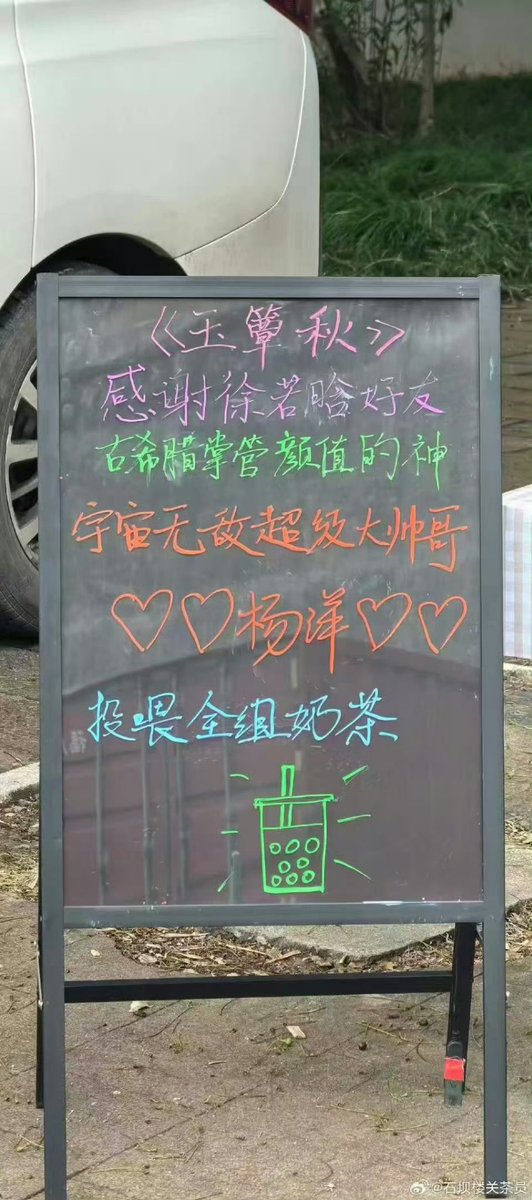 《玉簟秋》
感谢徐若晗好友
古希腊掌管颜值的神
宇宙无敌超级大帅哥
♡♡杨洋♡♡
投喂全组奶茶
@石坝楼关茶员